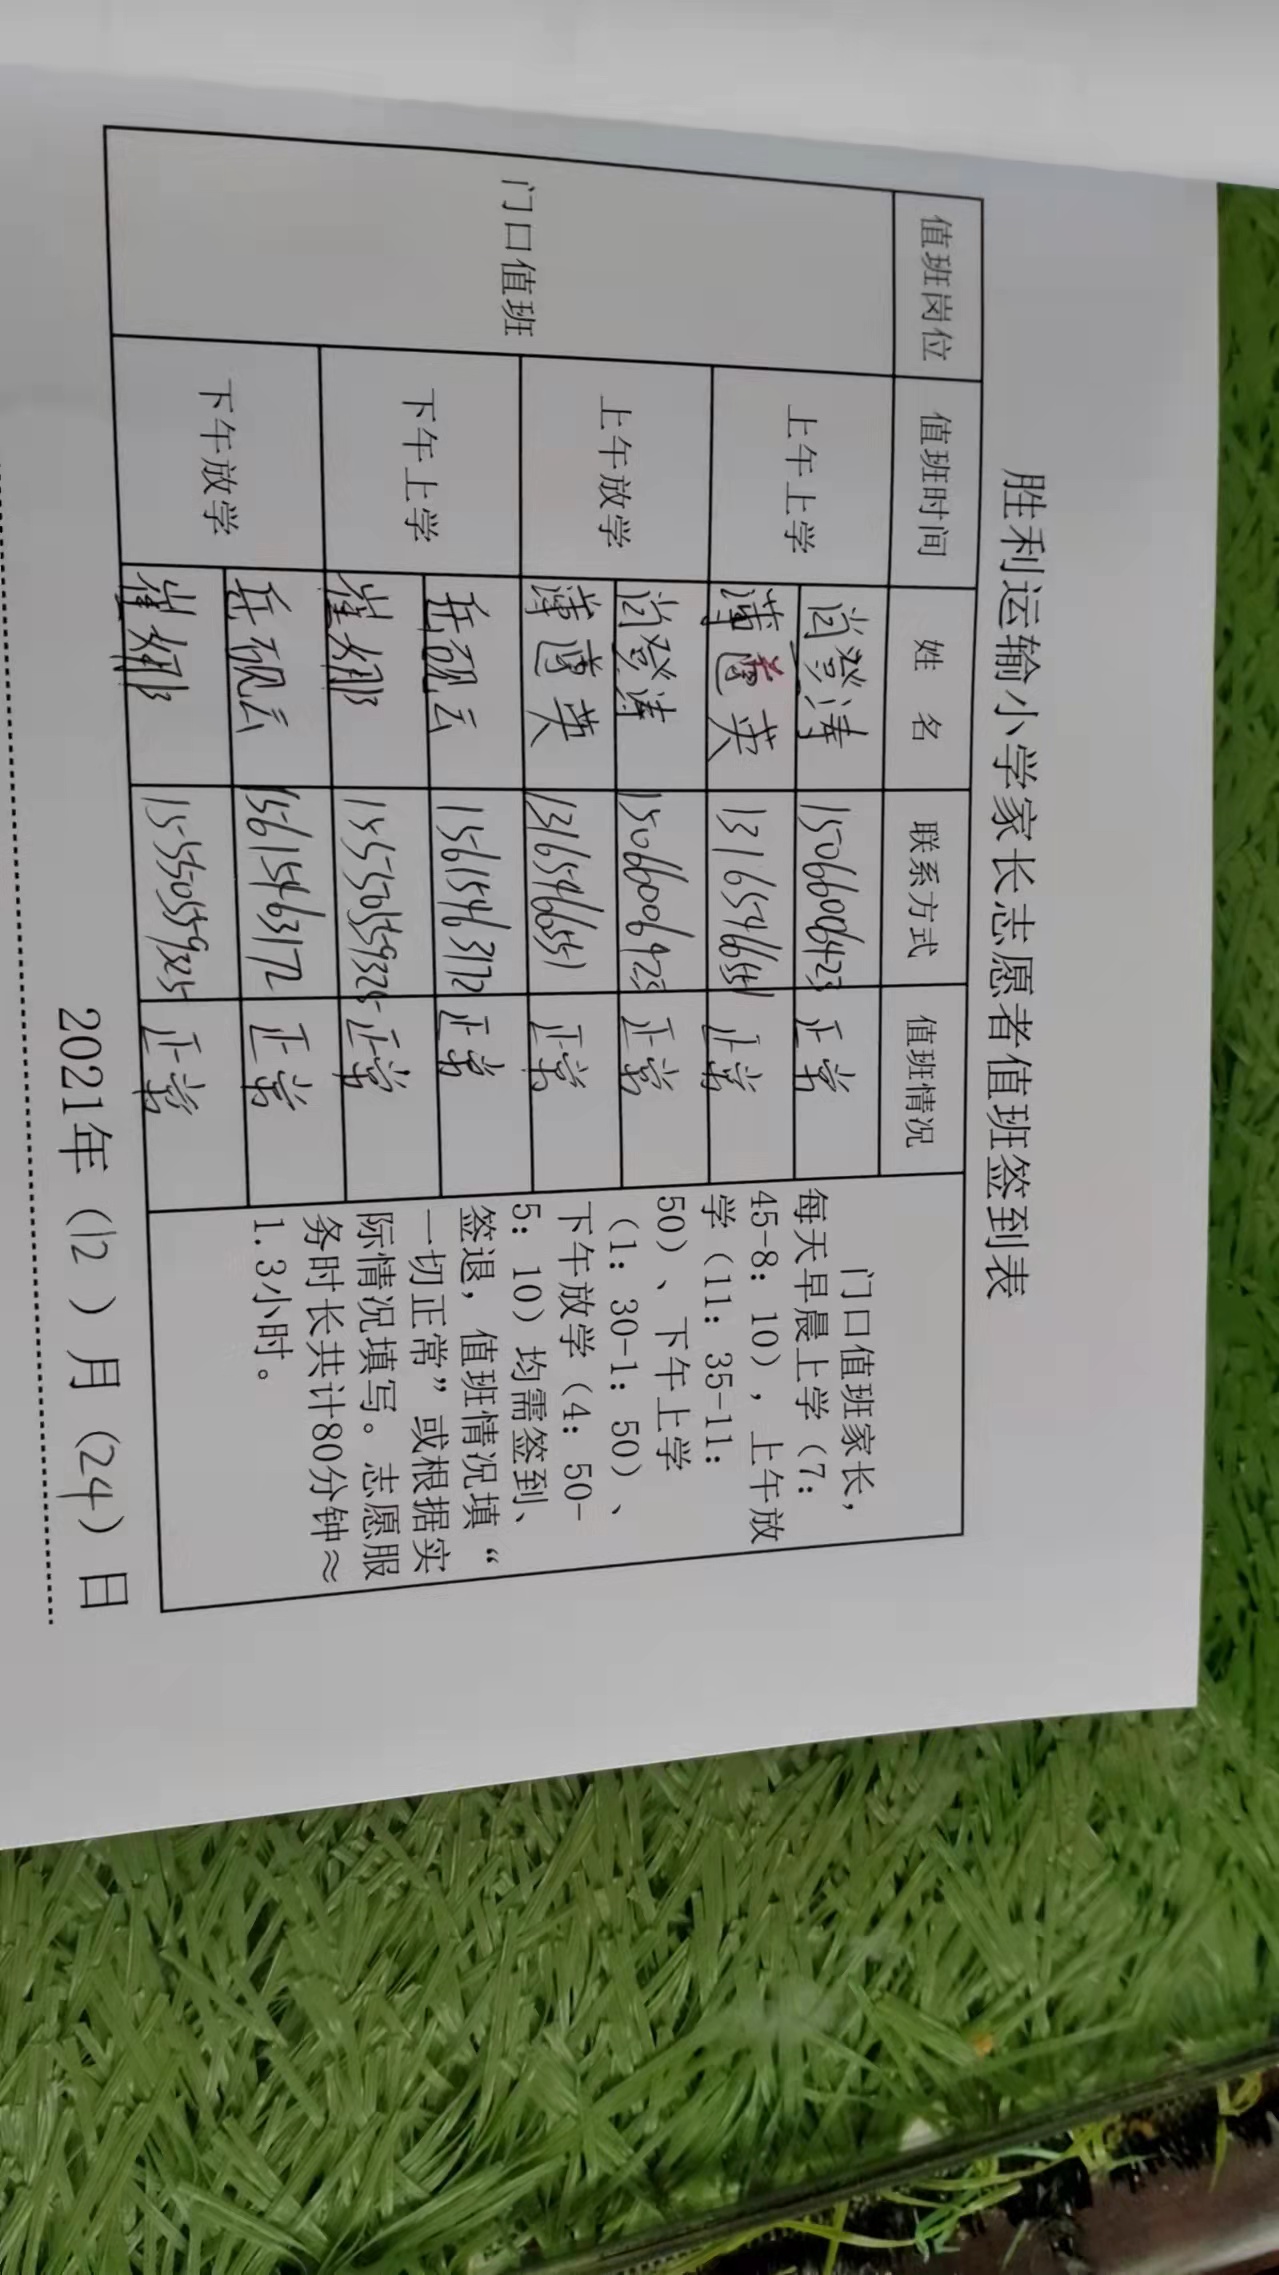 胜利运输小学家长志愿者值班签到表
值班岗位 值班时间 姓 名 联系方式 值班情况
门口值班
上午上学
尚登涛 15066006423 正常
薄蔼英 13165466551 正常
上午放学
尚登涛 15066006423 正常
薄蔼英 13165466551 正常
下午上学
岳砚云 15615463172 正常
崔娜 15550559325 正常
下午放学
岳砚云 15615463172 正常
崔娜 15550559325 正常
门口值班家长，
每天早晨上学（7：
45-8：10），上午放
学（11：35-11：
50）、下午上学
（1：30-1：50）、
下午放学（4：50-
5：10）均需签到、
签退，值班情况填“
一切正常”或根据实
际情况填写。志愿服
务时长共计80分钟≈
1.3小时。
2021年（12）月（24）日